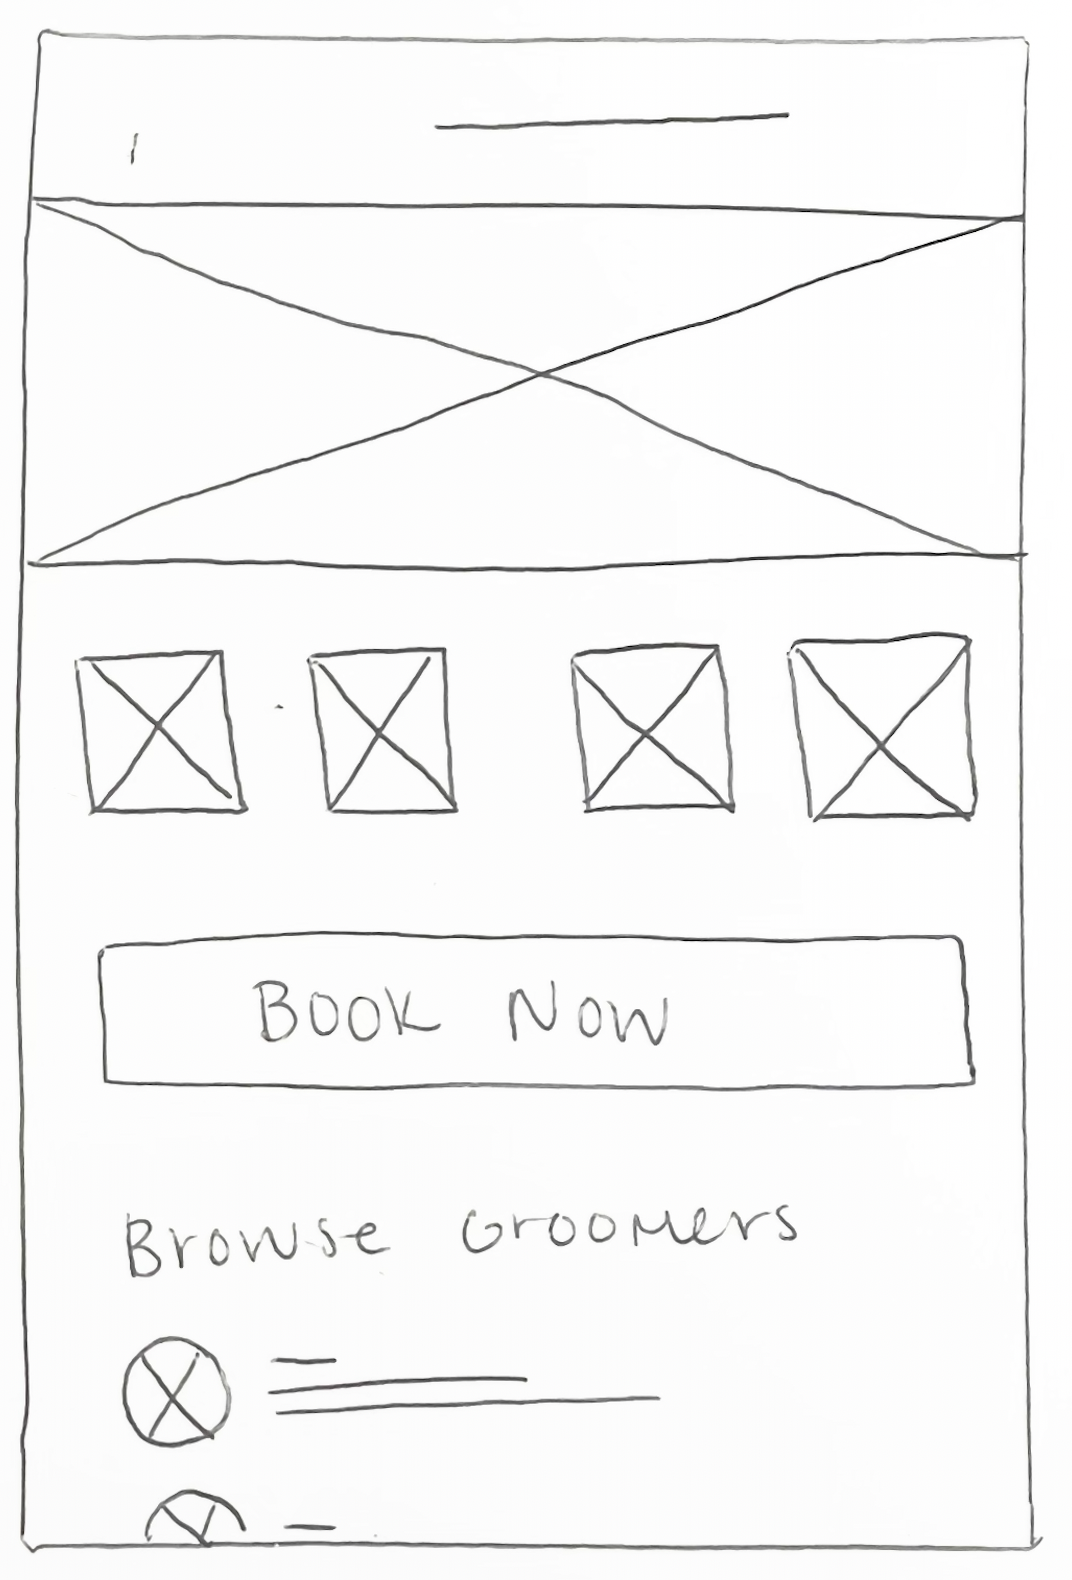 Book Now
Browse Groomers